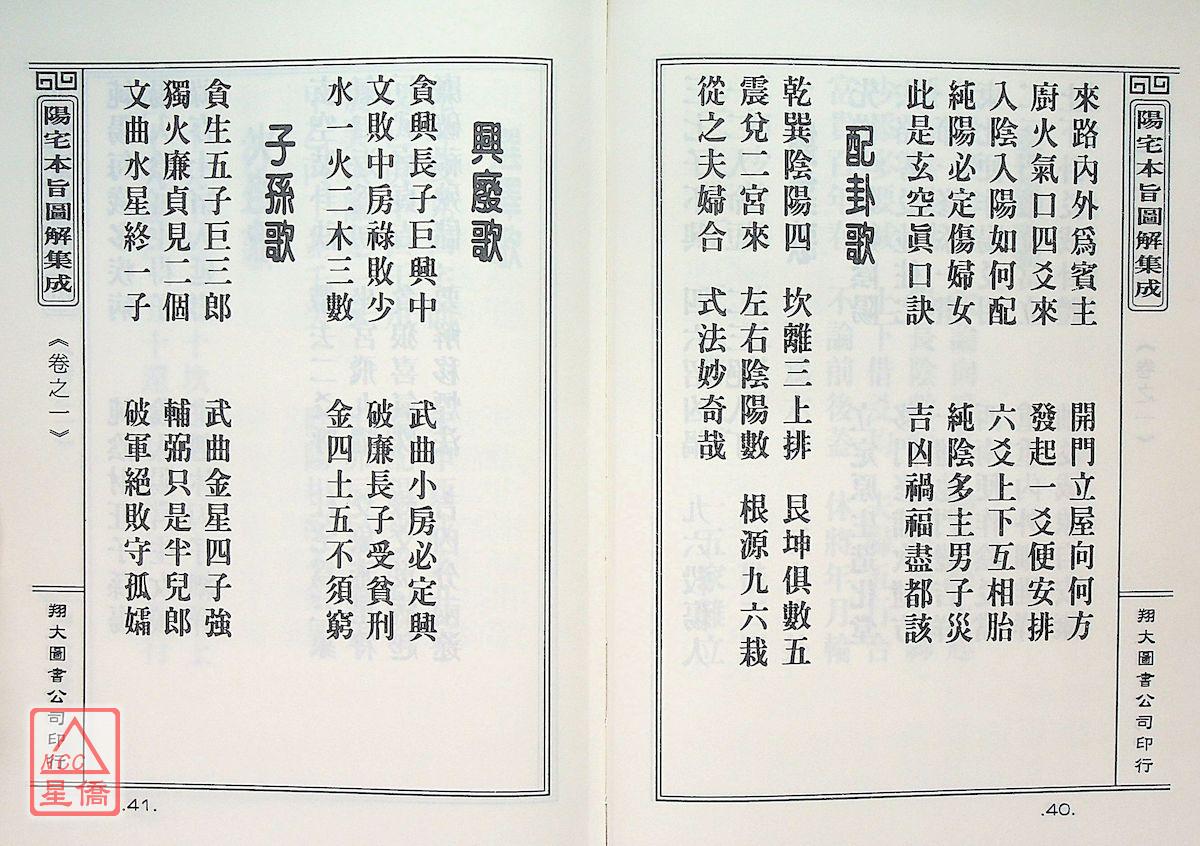 陽宅本旨圖解集成
翔大圖書公司印行
來路內外爲賓主　開門立屋向何方
廚火氣口四爻來　發起一爻便安排
入陰入陽如何配　六爻上下互相胎
純陽必定傷婦女　純陰多主男子災
此是玄空眞口訣　吉凶禍福盡都該
配卦歌
乾巽陰陽四　坎離三上排　艮坤俱數五
震兌二宮來　左右陰陽數　根源九六栽
從之夫婦合　式法妙奇哉
.40.
興廢歌
貪興長子巨興中　武曲小房必定興
文敗中房祿敗少　破廉長子受貧刑
水一火二木三數　金四土五不須窮
子孫歌
貪生五子巨三郎　武曲金星四子強
獨火廉貞見二個　輔弼只是半兒郎
文曲水星終一子　破軍絕敗守孤孀
陽宅本旨圖解集成
《卷之一》
翔大圖書公司印行
.41.
NCC
星僑